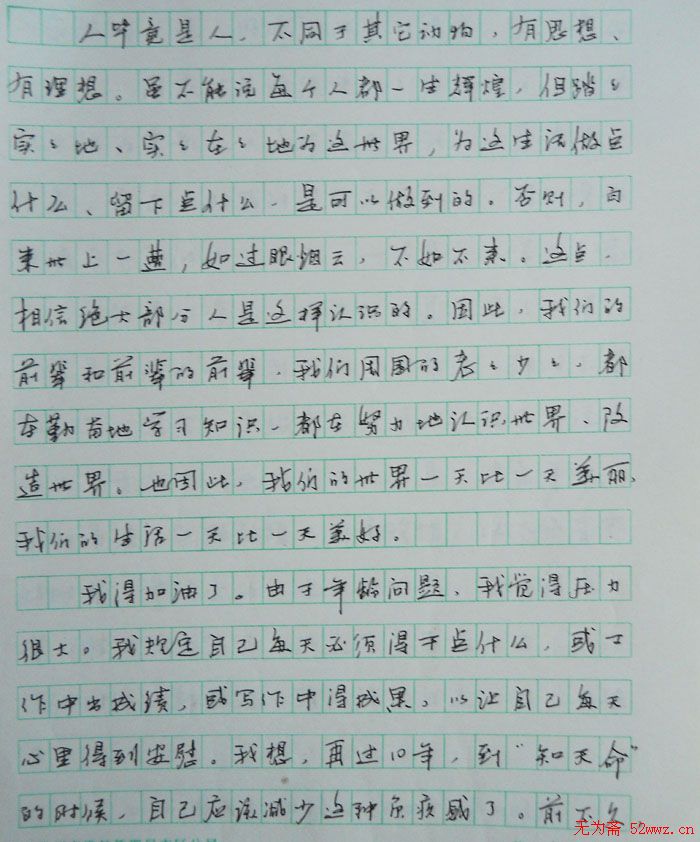 人毕竟是人，不同于其它动物，有思想、
有理想。虽不能说每个人都一生辉煌，但踏々
实々地、实々在々地为这世界，为这生活做点
什么、留下点什么，是可以做到的。否则，白
来世上一遭，如过眼烟云，不如不来。这点，
相信绝大部分人是这样认识的。因此，我们的
前辈和前辈的前辈，我们周围的老々少々，都
在勤奋地学习知识，都在努力地认识世界、改
造世界。也因此，我们的世界一天比一天美丽，
我们的生活一天比一天美好。
我得加油了。由于年龄问题，我觉得压力
很大。我规定自己每天必须得干点什么，或工
作中出成绩，或写作中得成果，以让自己每天
心里得到安慰。我想，再过10年，到“知天命”
的时候，自己应该减少这种负疚感了。前不久，
无为斋 52wwz.cn